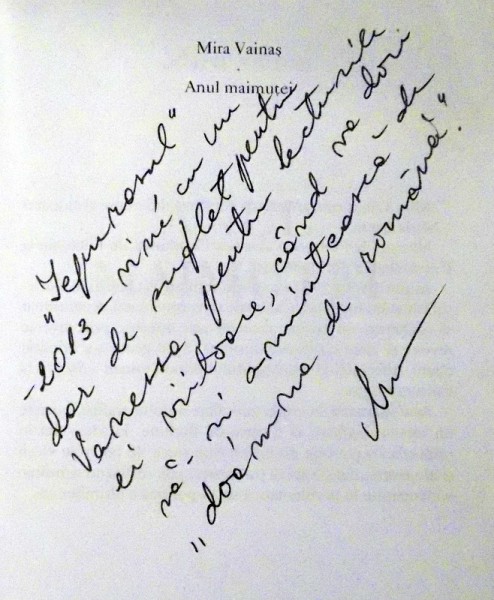 Mira Vainaș
Anul maimuței
"Iepurasul"
-2013 vine, cu un
dar de suflet pentru
Vanessa, pentru lecturile
ei viitoare, când va dori
să-și amintească de
"doamna de română".